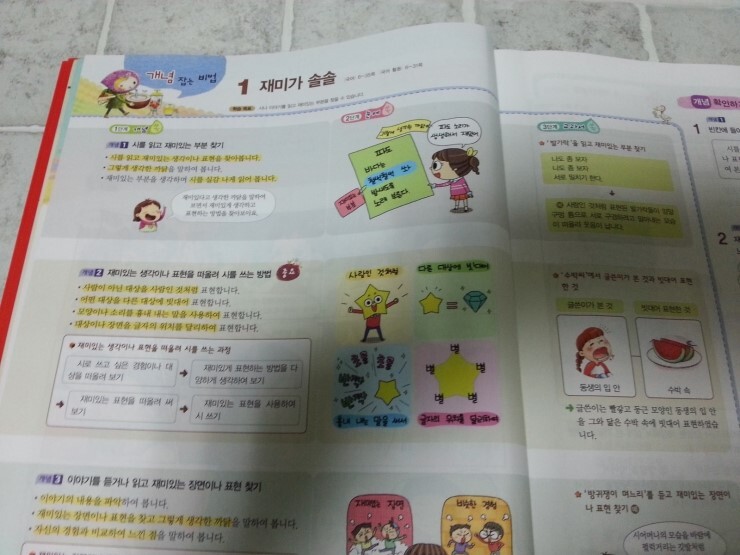 개념 잡는 비법
1 재미가 솔솔
1단계 개념
개념 1 시를 읽고 재미있는 부분 찾기
• 시를 읽고 재미있는 생각이나 표현을 찾아봅니다.
• 그렇게 생각한 까닭을 말하여 봅니다.
• 재미있는 부분을 생각하며 시를 실감 나게 읽어 봅니다.
재미있다고 생각한 까닭을 말하여
보면서 재미있게 생각하고
표현하는 방법을 찾아보아요.
파도
바다는
철썩철썩 쏴
밤새도록
노래 부른다.
파도 소리가
개념 2 재미있는 생각이나 표현을 떠올려 시를 쓰는 방법
중요
• 사람이 아닌 대상을 사람인 것처럼 표현합니다.
• 어떤 대상을 다른 대상에 빗대어 표현합니다.
• 모양이나 소리를 흉내 내는 말을 사용하여 표현합니다.
• 대상이나 장면을 글자의 위치를 달리하여 표현합니다.
재미있는 생각이나 표현을 떠올려 시를 쓰는 과정
시로 쓰고 싶은 경험이나 대
상을 떠올려 보기
→ 재미있게 표현하는 방법을 다
양하게 생각하여 보기
→ 재미있는 표현을 떠올려 써
보기
→ 재미있는 표현을 사용하여
시 쓰기
사람인 것처럼
다른 대상에 빗대어
=
별
별 별
별 별
흉내 내는 말을 써서
글자의 위치를 달리하여
개념 3 이야기를 듣거나 읽고 재미있는 장면이나 표현 찾기
• 이야기의 내용을 파악하여 봅니다.
• 재미있는 장면이나 표현을 찾고 그렇게 생각한 까닭을 말하여 봅니다.
• 자신의 경험과 비교하여 느낀 점을 말하여 봅니다.
재미있는 장면
비슷한 경험
3단계 교과서
읽고 재미있는 부분 찾기
나도 좀 보자
나도 좀 보자
서로 밀치기 한다.
에서 글쓴이가 본 것과 빗대어 표현
한 것
글쓴이가 본 것
빗대어 표현한 것
동생의 입 안
수박 속
→ 글쓴이는 빨갛고 둥근 모양인 동생의 입 안
을 그와 닮은 수박 속에 빗대어 표현하였습
니다.
• '방귀쟁이 며느리'를 듣고 재미있는 장면이
나 표현 찾기
시어머니의 모습을 바람에
개념 확인하
1
2